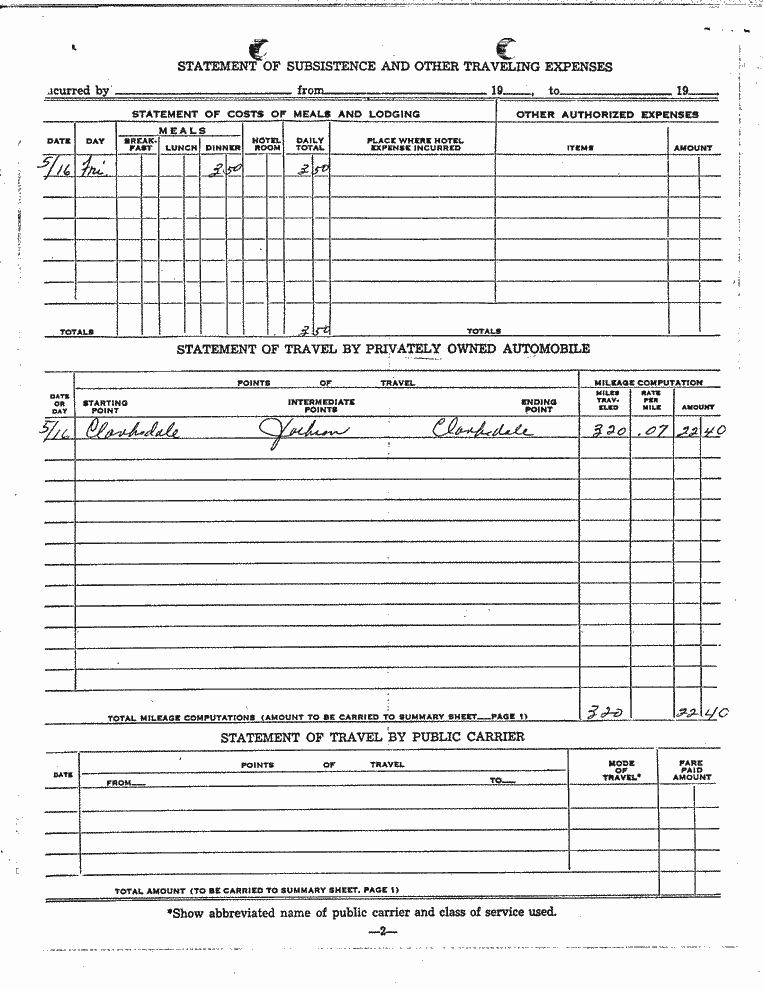 STATEMENT OF SUBSISTENCE AND OTHER TRAVELING EXPENSES
curred by from 19 , to 19
STATEMENT OF COSTS OF MEALS AND LODGING OTHER AUTHORIZED EXPENSES
DATE DAY MEALS BREAK-FAST LUNCH DINNER HOTEL ROOM DAILY TOTAL PLACE WHERE HOTEL EXPENSE INCURRED ITEMS AMOUNT
5/16 Fri. 3 50 3 50
TOTALS 3 50 TOTALS
STATEMENT OF TRAVEL BY PRIVATELY OWNED AUTOMOBILE
POINTS OF TRAVEL MILEAGE COMPUTATION
DATE OR DAY STARTING POINT INTERMEDIATE POINTS ENDING POINT MILES TRAV-ELED RATE PER MILE AMOUNT
5/16 Clarksdale Jackson Clarksdale 320 .07 22 40
TOTAL MILEAGE COMPUTATIONS (AMOUNT TO BE CARRIED TO SUMMARY SHEET—PAGE 1) 320 22 40
STATEMENT OF TRAVEL BY PUBLIC CARRIER
DATE POINTS OF TRAVEL MODE OF TRAVEL* FARE PAID AMOUNT
FROM— TO—
TOTAL AMOUNT (TO BE CARRIED TO SUMMARY SHEET. PAGE 1)
*Show abbreviated name of public carrier and class of service used.
—2—